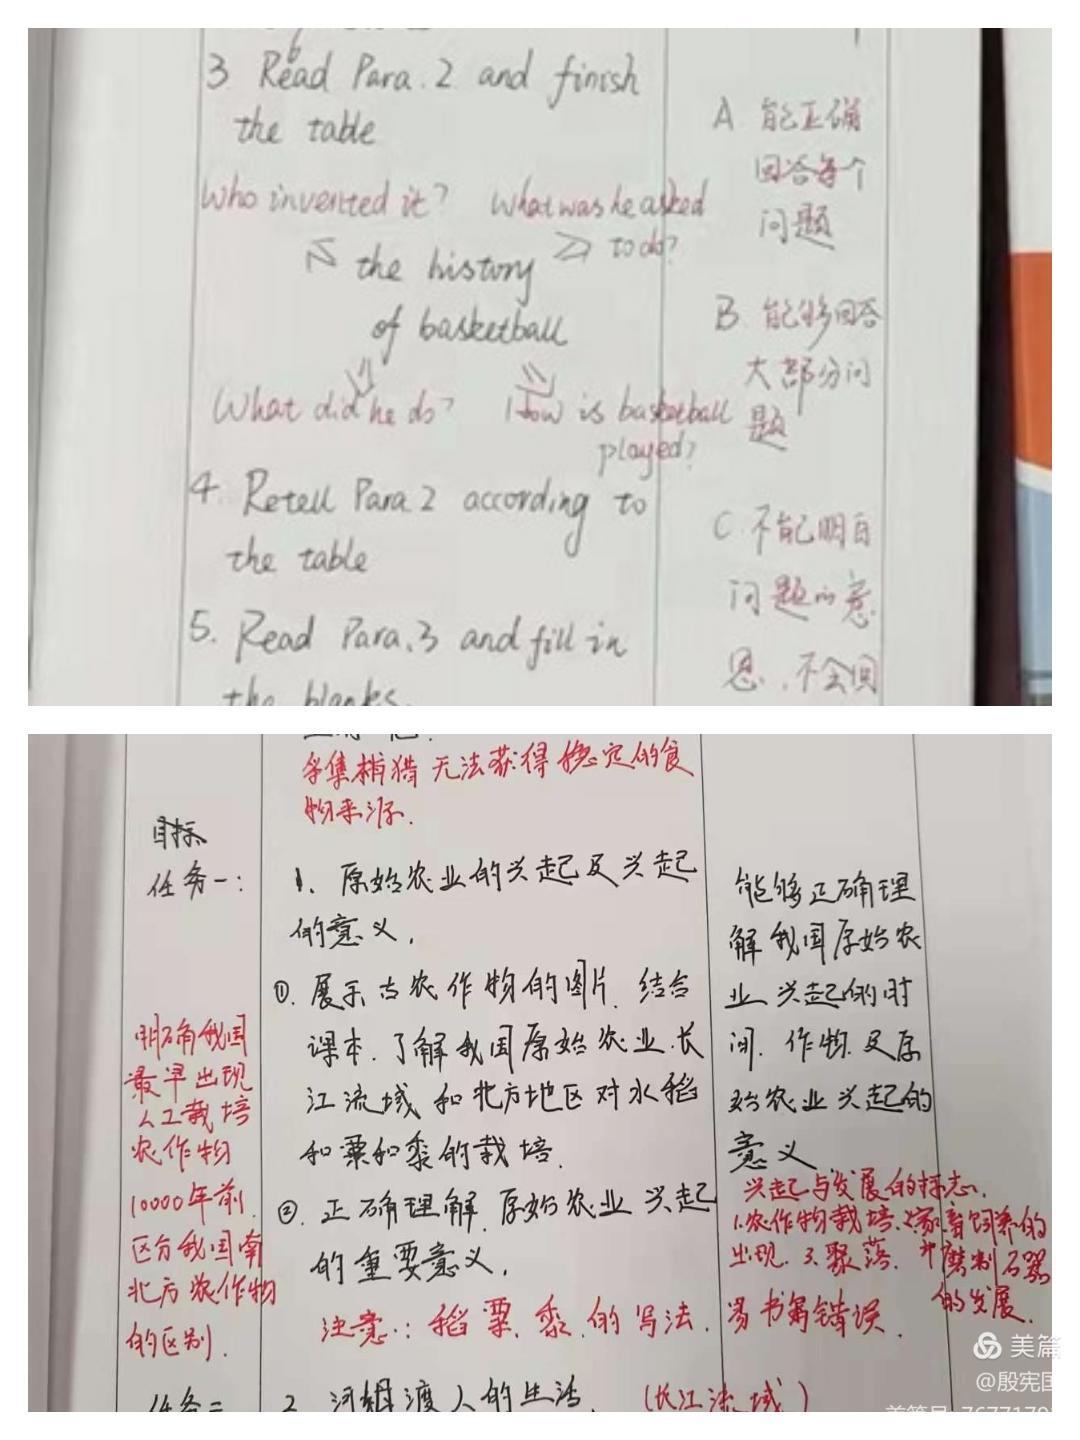 3 Read Para.2 and finish
the table
Who invented it? What was he asked
to do?
the history
of basketball
What did he do? How is basketball
played?
4. Retell Para 2 according to
the table
5. Read Para.3 and fill in
the blanks.
A 能正确
回答每个
问题
B 能够回答
大部分问
题
C 不能明白
问题的意
思,不会回
采集捕猎 无法获得稳定的食
物来源.
目标
任务一:
明确我国
最早出现
人工栽培
农作物
10000年前.
区分我国南
北方农作物
的区别.
任务二
1、原始农业的兴起及兴起
的意义.
①.展示古农作物的图片.结合
课本.了解我国原始农业.长
江流域和北方地区对水稻
和粟和黍的栽培.
②.正确理解.原始农业兴起
的重要意义.
注意:稻粟.黍.的写法.易书写错误.
2 河姆渡人的生活. (长江流域)
能够正确理
解我国原始农
业兴起的时
间.作物.及原
始农业兴起的
意义
兴起与发展的标志.
1.农作物栽培.2家畜饲养的
出现.3.聚落.4磨制石器
的发展.
美篇
@殷宪国